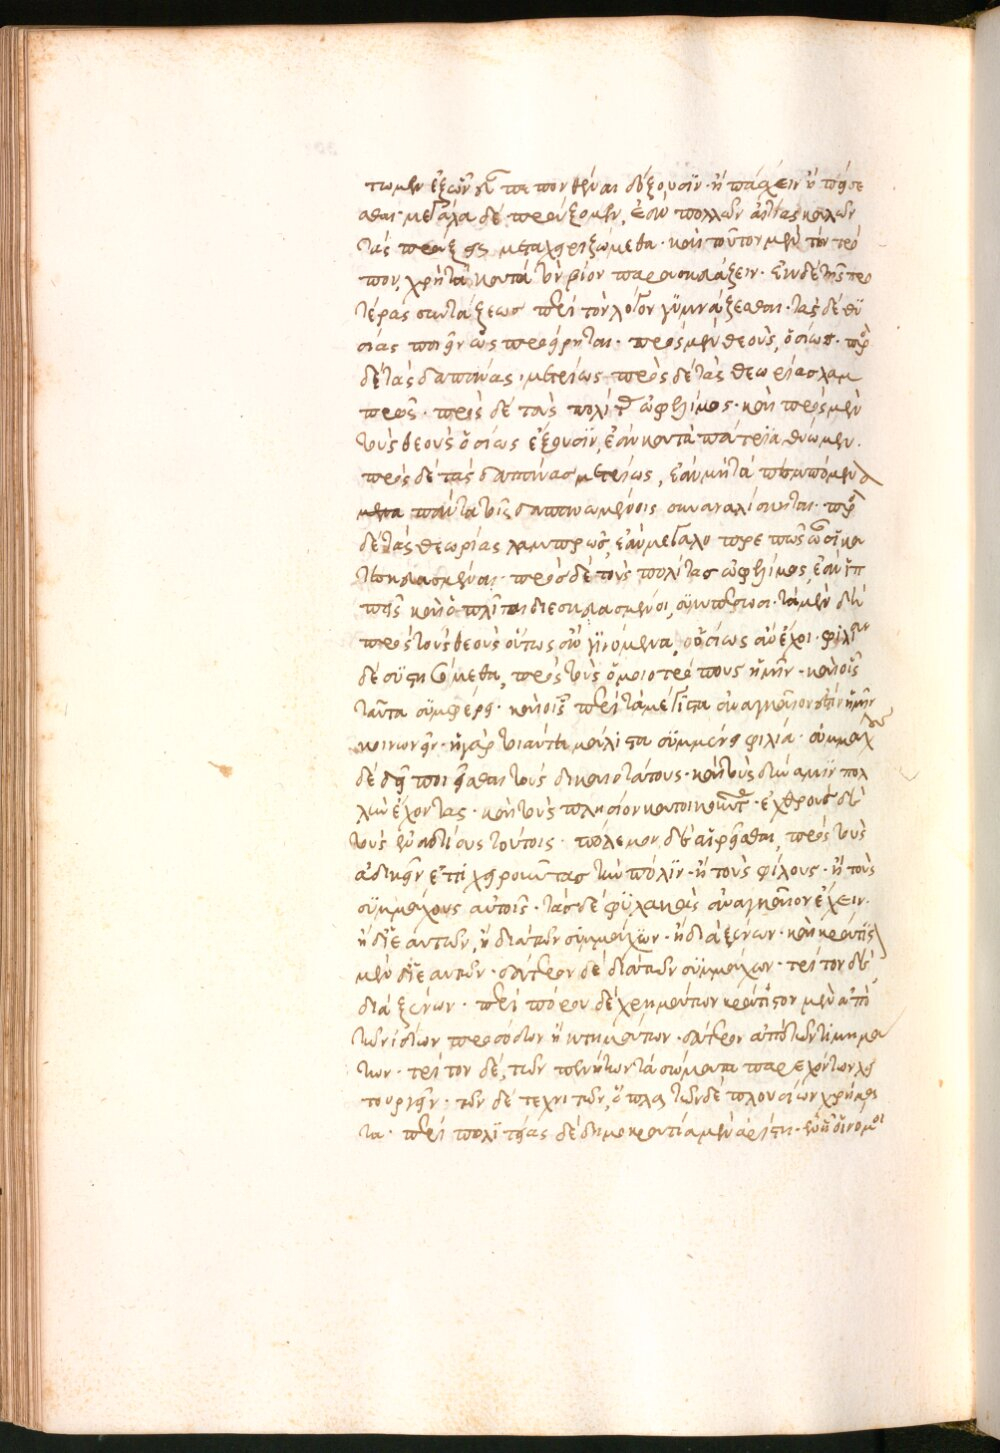 τωμεν ἐξ ὧν πεπονθέναι δόξουσϊν· ἢ πάσχειν ἢ πείσε
σθαι· μεγάλα δὲ πράξομεν, ἐὰν πολλῶν αἰτίας καλῶν
τὰς πράξεις μεταχειριζώμεθα· καὶ τοῦτον μὲν τὸν τρό
πον, χρὴ τὰ κατὰ τὸν βίον παρασκευάζειν· ἐκ δὲ τῆς προ
τέρας συντάξεως περὶ τὸν λόγον γϋμνάζεσθαι· τὰς δὲ θϋ
σίας ποιεῖν ὡς προείρηται· πρὸς μὲν θεοὺς, ὁσίως· πρὸς
δὲ τὰς δαπάνας· μετρίως πρὸς δὲ τὰς θεωρίας λαμ
πρῶς· πρὸς δὲ τοὺς πολί ὠφελίμος· καὶ πρὸς μὲν
τοὺς θεοὺς ὁσίως ἕξουσϊν, ἐὰν κατὰ πάτρϊα θύωμεν.
πρὸς δὲ τὰς δαπάνας μετρίως, ἐὰν μὴ τὰ
πάντα τοῖς δαπανωμένοις συναναλίσκηται· πρὸς
δὲ τὰς θεωρίας λαμπρῶς, ἐὰν μεγαλοπρεπῶς ὦσι κα
τεσκευασμέναι· πρὸς δὲ τοὺς πολίτας ὠφελίμος, ἐὰν ἱπ
πεῖς καὶ ὁπλῖται διεσκευασμένοι, συμπέμπωσι· τὰ μὲν δὴ
πρὸς τοὺς θεοὺς οὕτως ἂν γϊνόμενα, ὁσίως ἂν ἔχοι· φιλίαν
δὲ συστησόμεθα, πρὸς τοὺς ὁμοιοτρόπους ἡμῖν· καὶ οἷς
ταῦτα συμφέρει· καὶ οἷς περὶ τὰ μέγιστα ἀναγκαῖον ἐστὶν ἡμῖν
κοινωνεῖν· ἡ γὰρ τοιαύτη μάλιστα συμμένει φιλία· συμμάχους
δὲ δεῖ ποιεῖσθαι τοὺς δικαιοτάτους· καὶ τοὺς δύναμϊν πολ
λὴν ἔχοντας· καὶ τοὺς πλησίον κατοικοῦντας· ἐχθροὺς δὲ
τοὺς ἐναντίους τούτοις· πόλεμον δὲ αἱρεῖσθαι πρὸς τοὺς
ἀδικεῖν ἐπιχειροῦντας τὴν πόλϊν· ἢ τοὺς φίλους· ἢ τοὺς
συμμάχους αὐτοῖς· τὰς δὲ φϋλακὰς ἀναγκαῖον ἔχειν.
ἢ δϊ ἑαυτῶν, ἢ διὰ τῶν συμμάχων· ἢ διὰ ξένων· καὶ κράτιστα
μὲν δϊ ἑαυτῶν· δεύτερον δὲ διὰ τῶν συμμάχων· τρίτον δὲ
διὰ ξένων· περὶ πόρου δὲ χρημάτων κράτιστον μὲν ἀπὸ
τῶν ἰδίων προσόδων ἢ κτημάτων· δεύτερον ἀπὸ τῶν τιμημα
των· τρίτον δὲ, τῶν πενήτων τὰ σώματα παρεχόντων λει
τουργεῖν· τῶν δὲ τεχνιτῶν, ὅπλα τῶν δὲ πλουσίων χρήμα
τα· περὶ πολϊτείας δὲ δημοκρατία μὲν ἀρίστη· ἐν ᾗ οἱ νόμοι